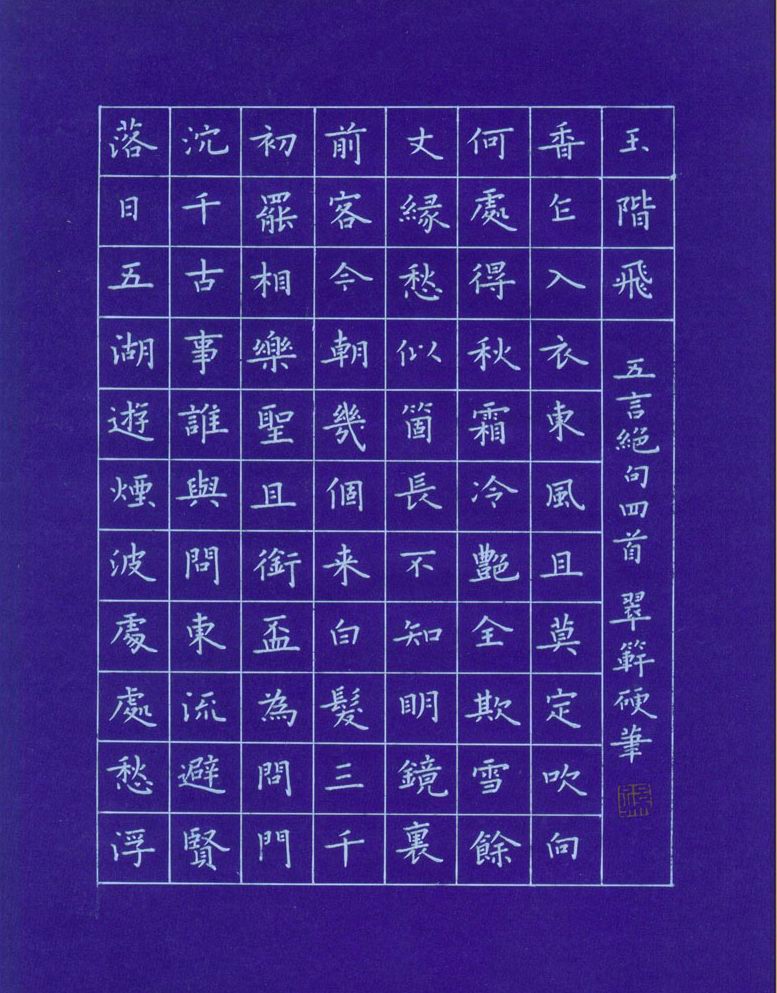 落日五湖遊煙波處處愁浮
沉千古事誰與問東流避賢
初罷相樂聖且銜盃為問門
前客今朝幾個来白髮三千
丈緣愁似箇長不知明鏡裏
何處得秋霜冷艷全欺雪餘
香乍入衣東風且莫定吹向
玉階飛
五言絕句四首 翠硬筆